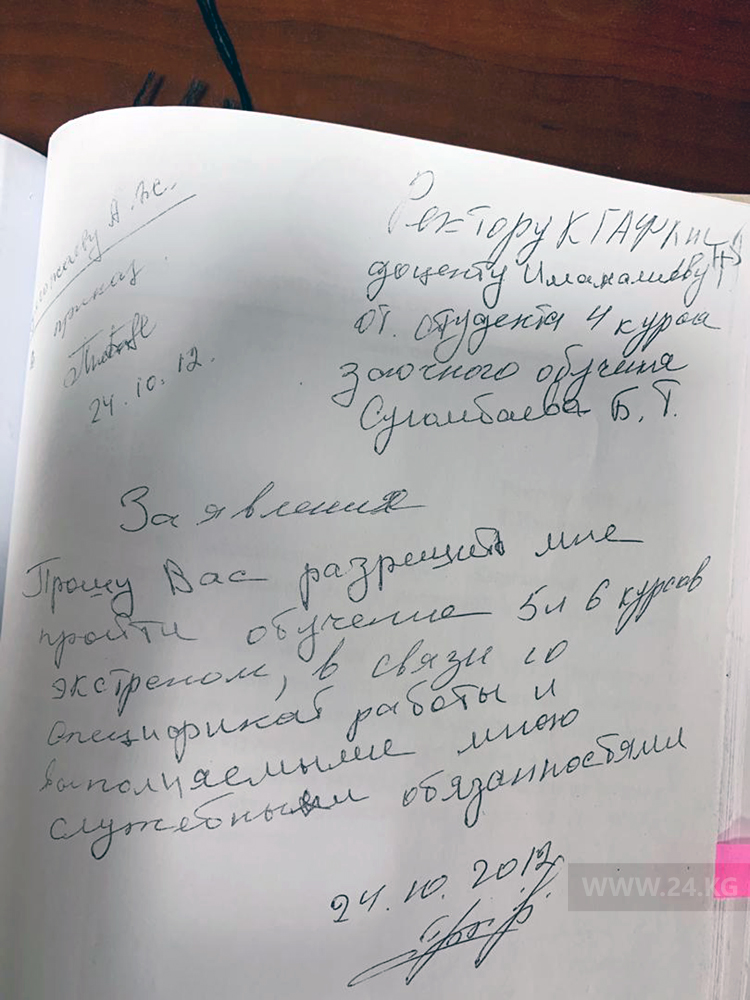 А. Ж.
приказ
24.10.12.
Ректору КГАФКиС
доценту Имамалиеву
от студента 4 курса
заочного обучения
Сугалбаева Б. Т.
Заявление
Прошу Вас разрещить мне
пройти обучение 5 и 6 курсов
экстреном, в связи со
спецификат работы и
выполняемыме мною
служебными обязанностями
24.10.2012
WWW.24.KG